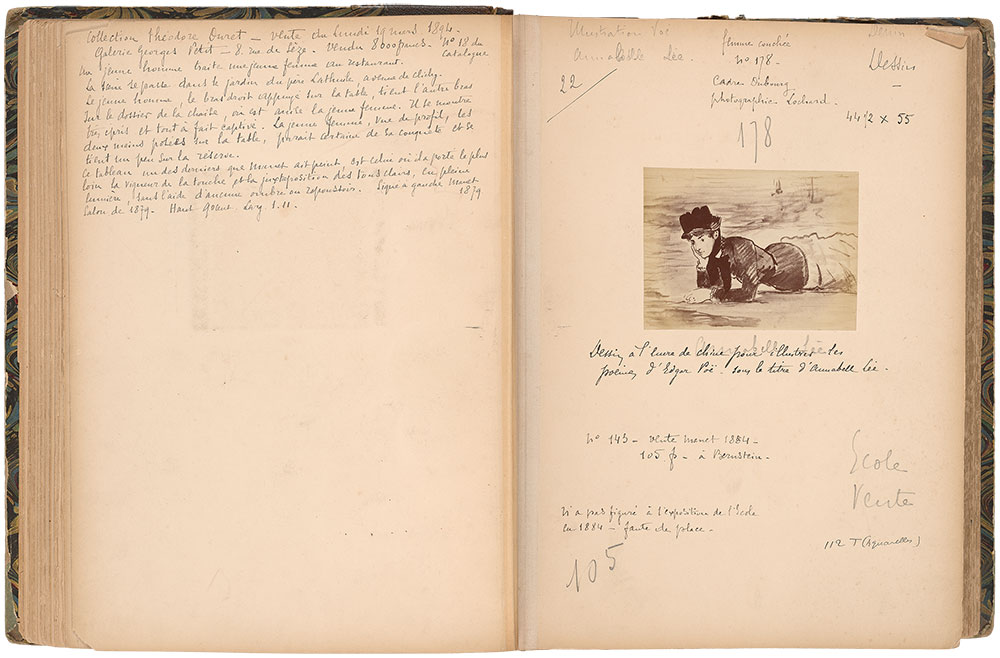 Collection Théodore Duret – Vente du Lundi 19 mars 1894
Galerie Georges Petit – 8 rue de Sèze. Vendu 8000 francs. N° 18 du
Catalogue
Un jeune homme traite une jeune femme au restaurant.
La scène se passe dans le jardin du père Lathuile avenue de Clichy.
Le jeune homme, le bras droit appuyé sur la table, tient l'autre bras
sur le dossier de la chaise, où est assise la jeune femme. Il se montre
très épris et tout à fait captivé. La jeune femme, vue de profil, les
deux mains posées sur la table, paraît certaine de sa conquête et se
tient un peu sur la réserve.
Ce tableau un des derniers que Manet ait peint est celui où il a porté le plus
loin la vigueur de la touche et la juxtaposition des tons clairs, en pleine
lumière, sans l'aide d'aucune ombre ou repoussoir. Signé à gauche Manet
1879
Salon de 1879. Haut Larg 1.11.
Illustration Poë
Annabelle Lée.
22
femme couchée
N° 178 –
Cadre Dubourg
photographie Lochard.
178
Dessin
Dessins
44 1/2 x 55
Annabelle Lée
Dessin à l'encre de chine pour illustrer les
poèmes d'Edgar Poë. sous le titre d'Annabell Lée.
N° 143 – Vente Manet 1884 –
105 f – à Bernstein –
N'a pas figuré à l'exposition de l'Ecole
en 1884 – faute de place –
105
Ecole
Vente
112 T (Aquarelles)